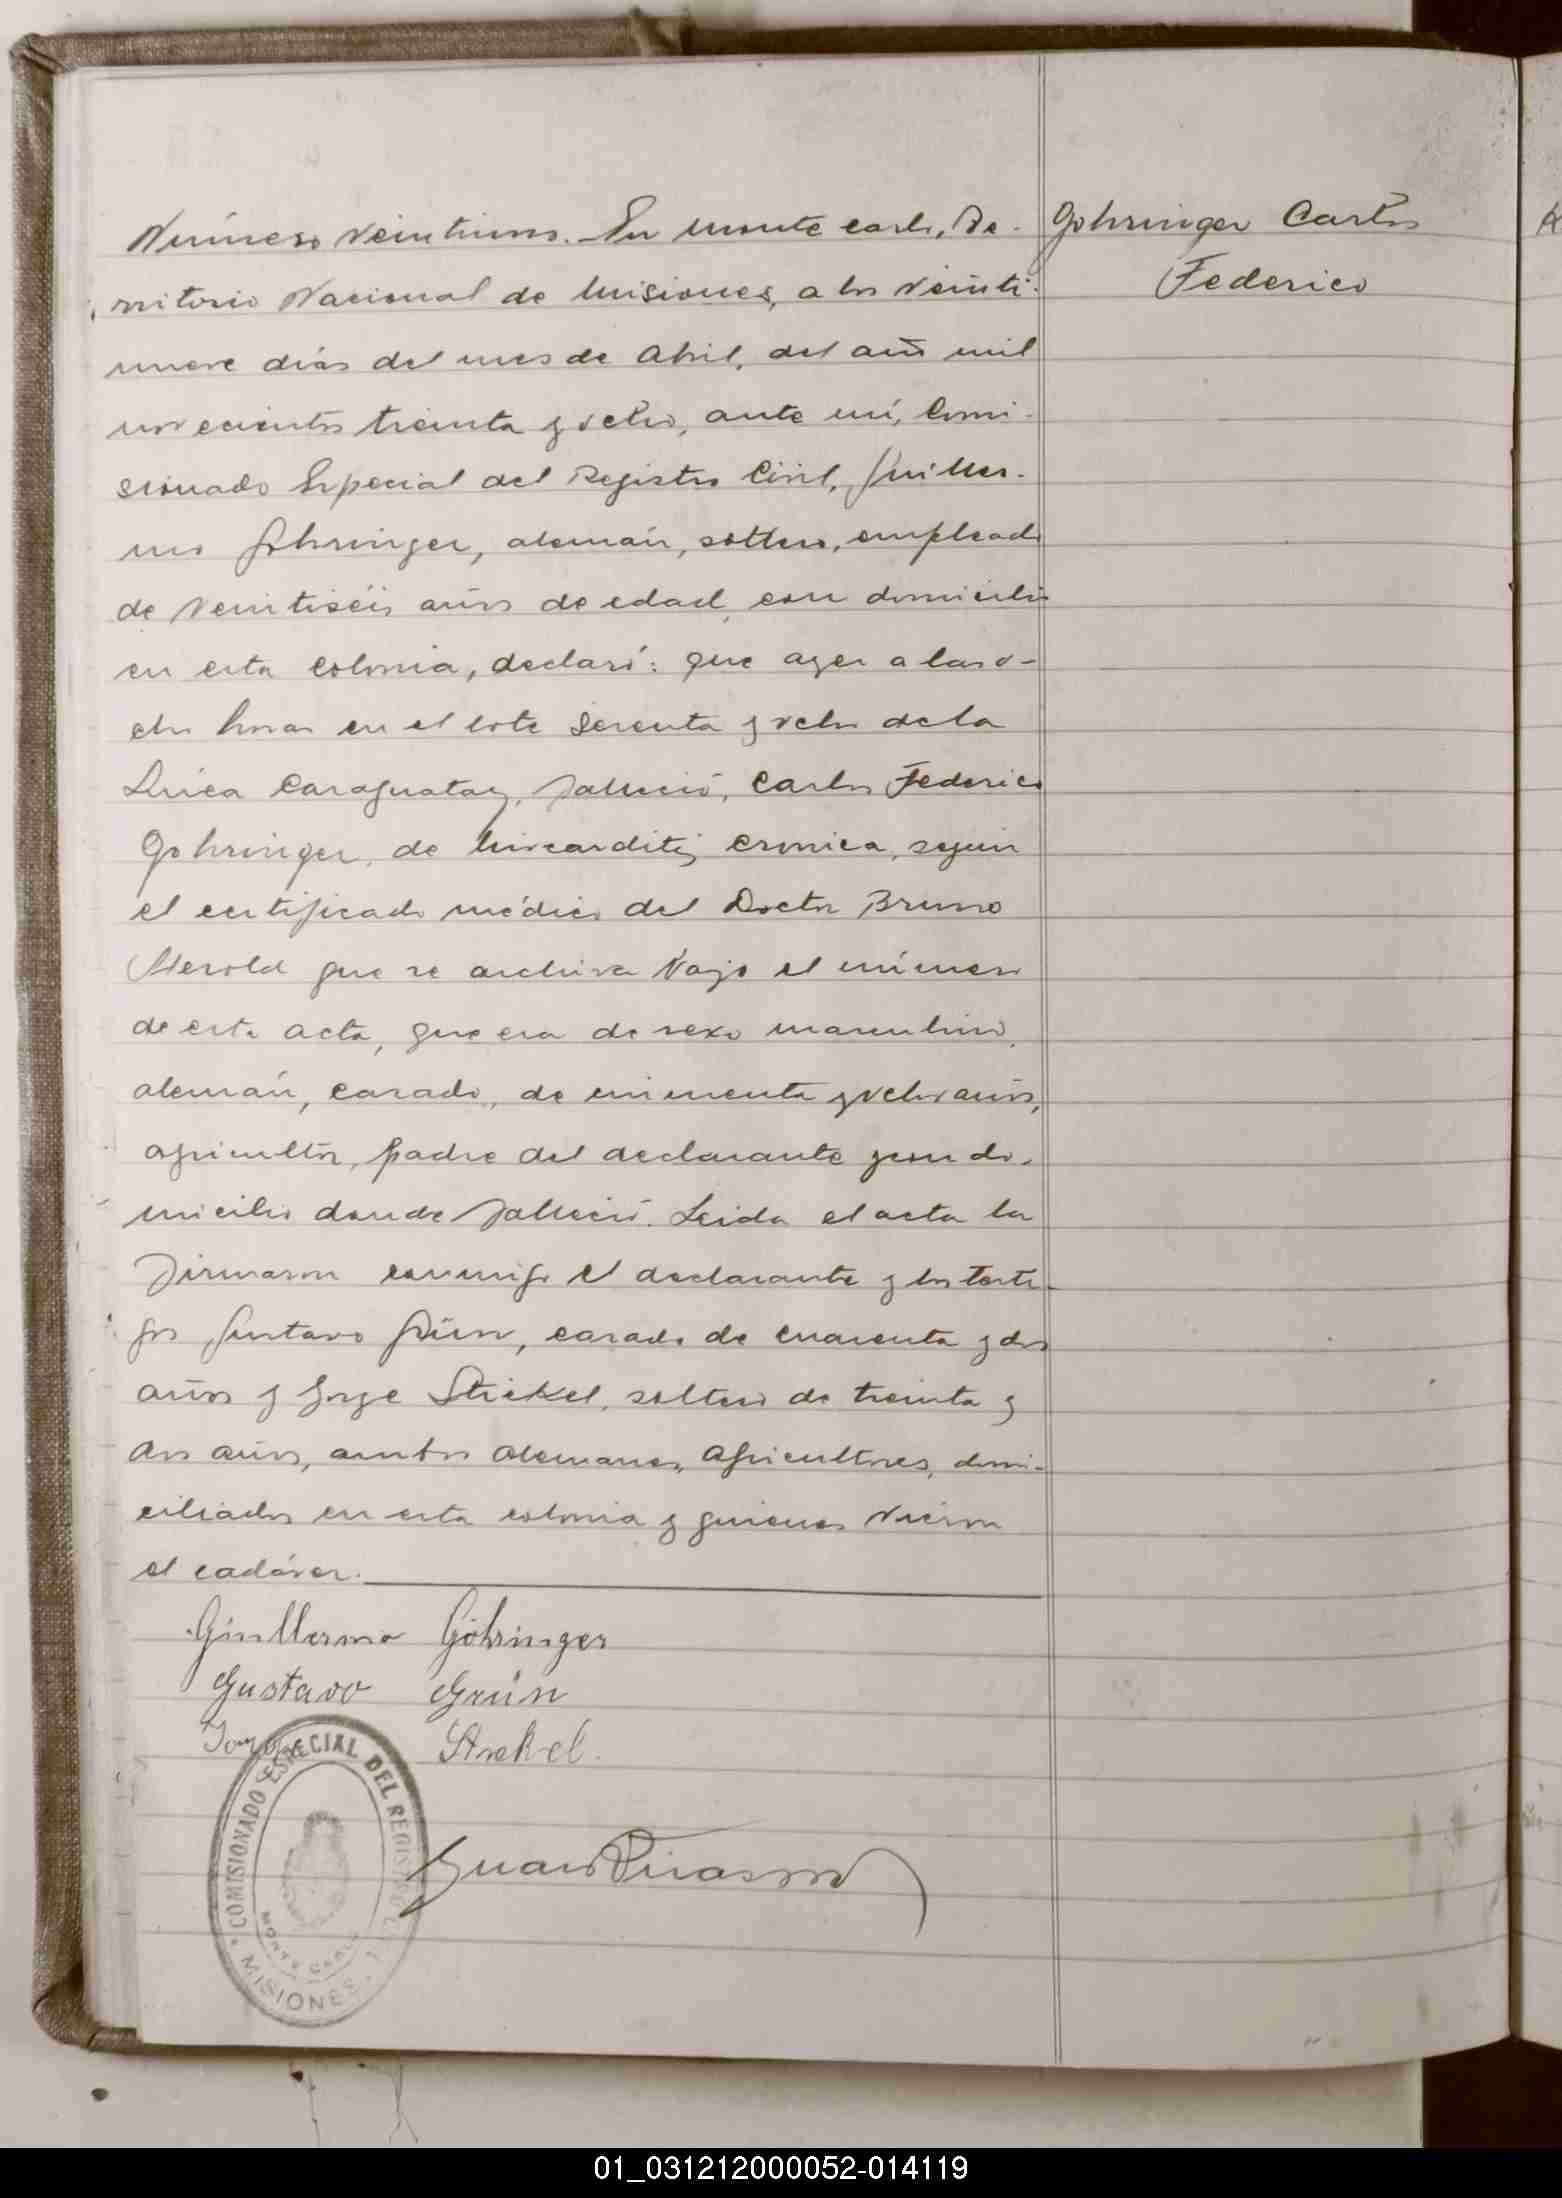 Número veintiuno. En Monte Carlo, Te-
rritorio Nacional de Misiones, a los veinti-
nueve días del mes de Abril, del año mil
novecientos treinta y ocho, ante mí, Comi-
sionado Especial del Registro Civil, Guiller-
mo Gohringer, alemán, soltero, empleado
de veintiséis años de edad, con domicilio
en esta colonia, declaró: que ayer a las o-
cho horas en el lote sesenta y ocho de la
Línea Caraguatay, falleció, Carlos Federico
Gohringer, de miocarditis cronica, según
el certificado médico del Doctor Bruno
Herold que se archiva bajo el número
de esta acta, que era de sexo masculino,
alemán, casado, de cincuenta y ocho años,
agricultor, padre del declarante y con do-
micilio donde falleció. Leida el acta la
firmaron conmigo el declarante y los testi-
gos Gustavo Grün, casado de cuarenta y dos
años y Jorge Strekel, soltero de treinta y
dos años, ambos alemanes, agricultores, domi-
ciliados en esta colonia y quienes vieron
el cadáver.
Guillermo Göhringer
Gustavo Grün
Jorge Strekel.
Gohringer Carlos
Federico
COMISIONADO ESPECIAL DEL REGISTRO
MONTE CARLO
MISIONES
01_031212000052-014119